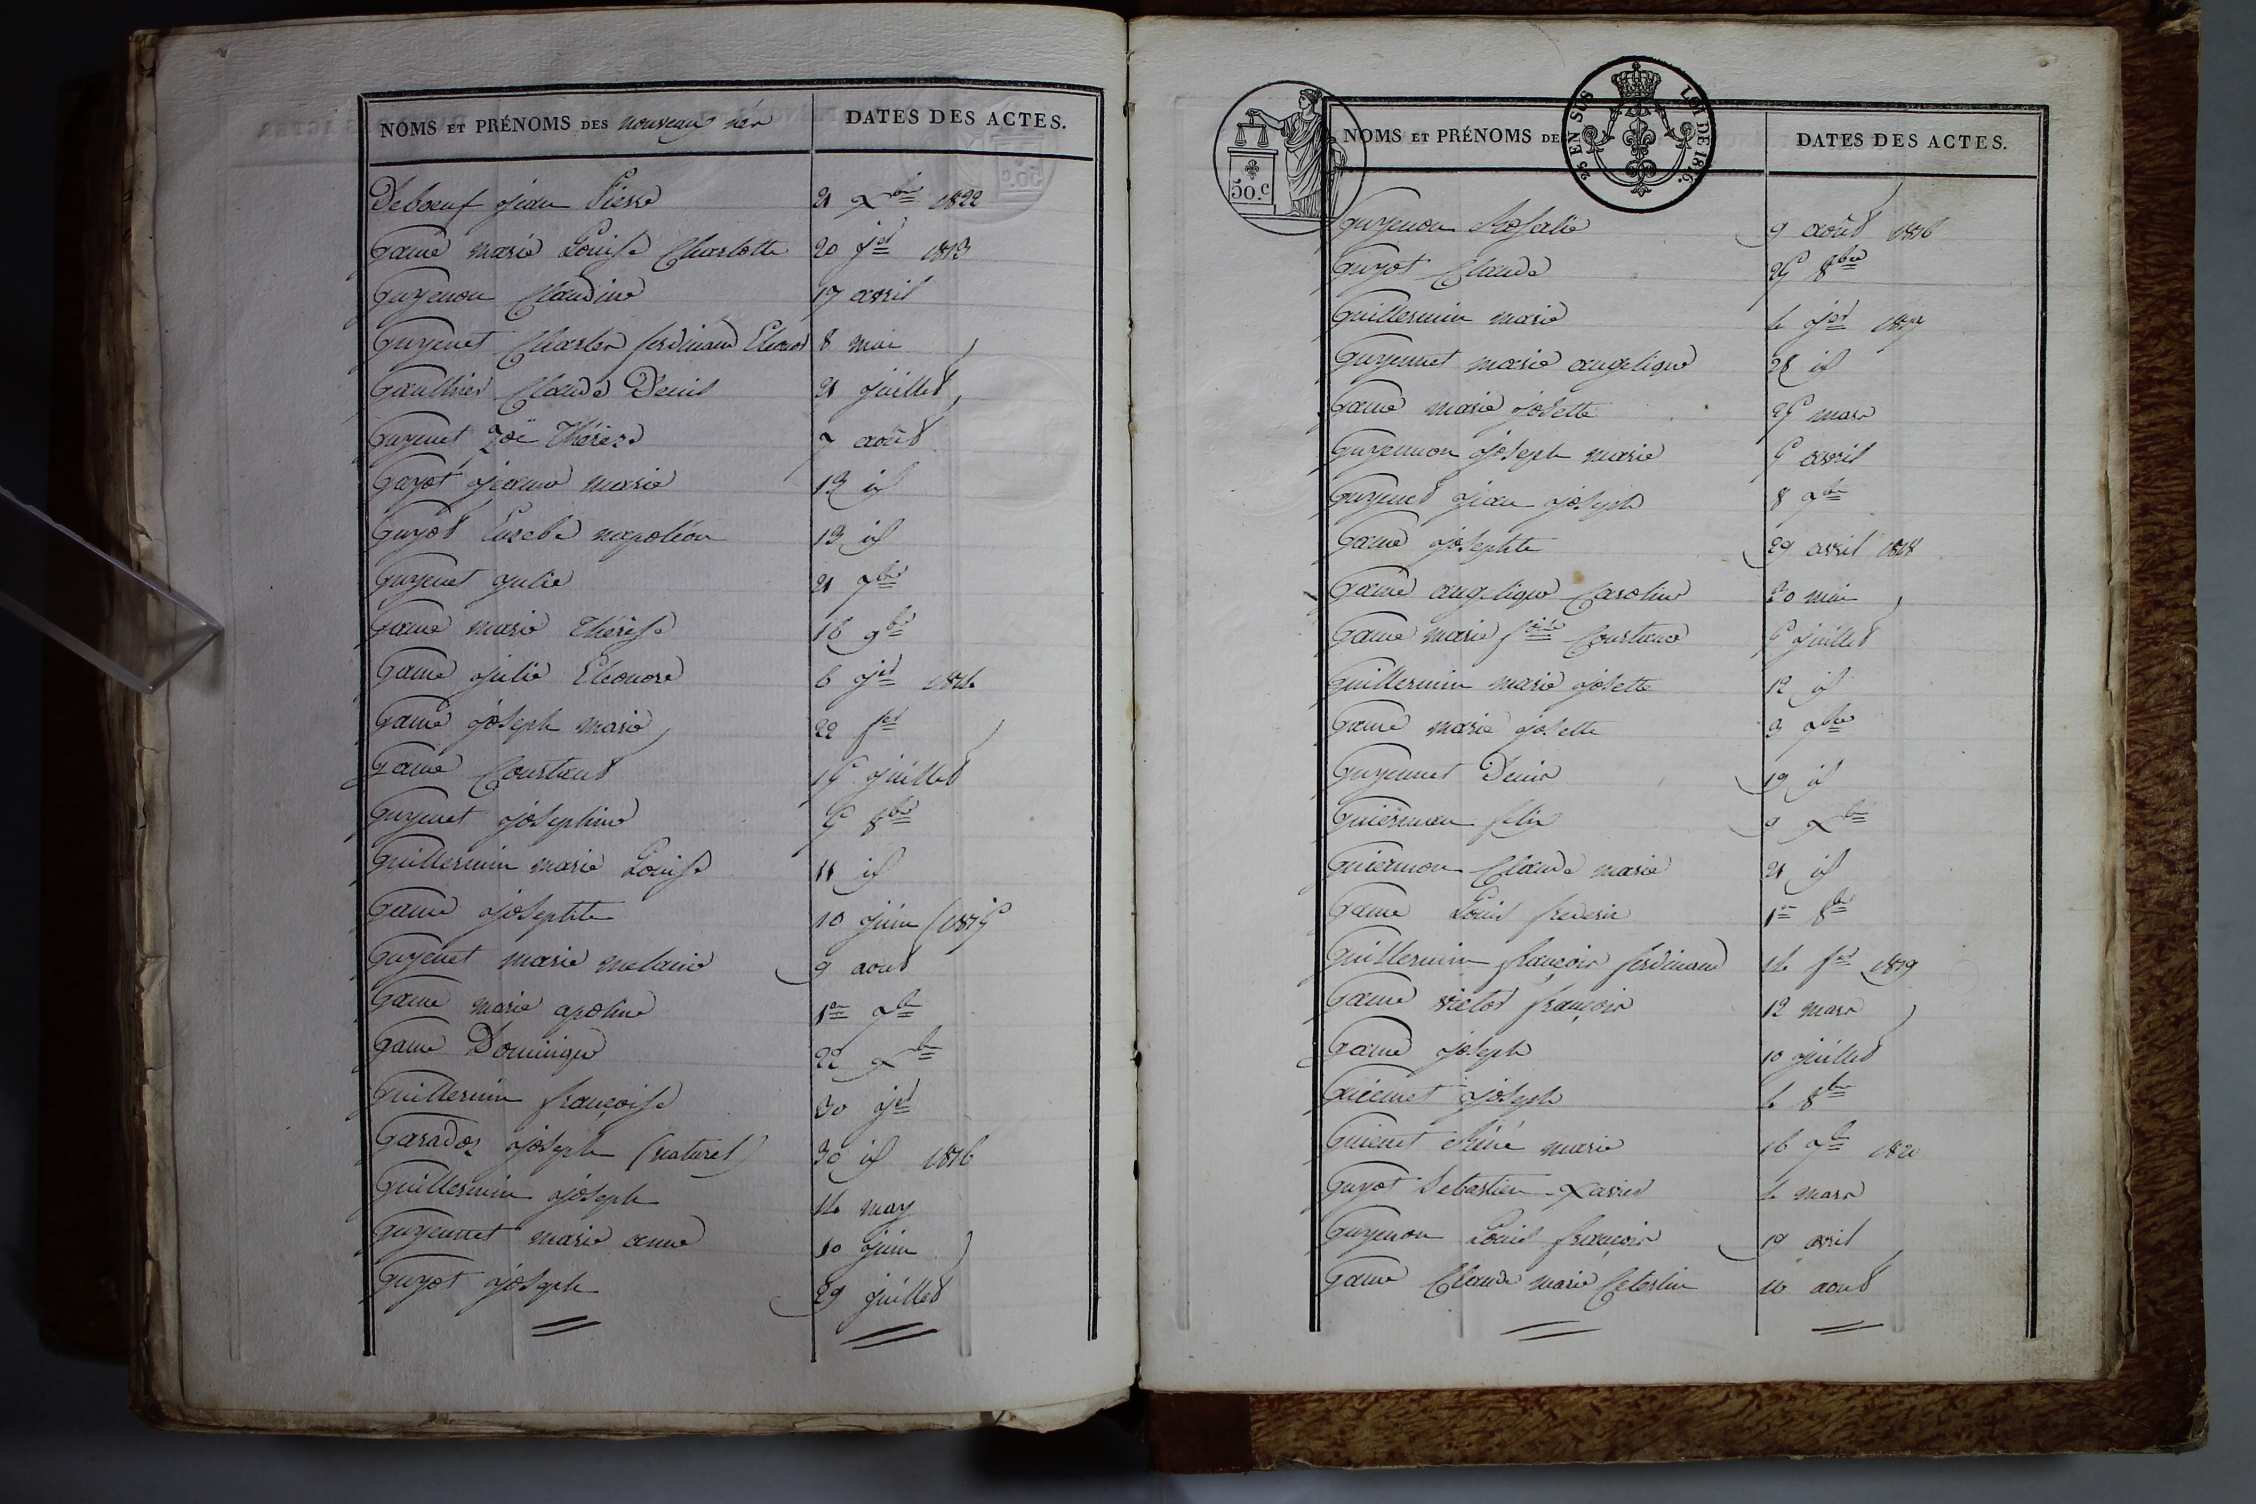 NOMS ET PRÉNOMS DES nouveaux nés DATES DES ACTES.
Deboeuf jean Pierre 21 Xbre 1822
Game marie Louise Charlotte 20 jer 1813
Guyenon Claudine 17 avril
Guyenet Charles ferdinand Eleonor 8 mai
Gaulthier Claude Denis 21 juillet
Guyenet Zoë Thérese 7 août
Guyot jeanne marie 13 id
Guyot Eusebe napoléon 13 id
Guyenet julie 21 7bre
Game marie Thérèse 16 9bre
Game julie Eleonore 6 jer 1814
Game joseph marie 22 fer
Game Constant 15 juillet
Guyenet josephine 5 8bre
Guillermin marie Louise 11 id
Game josephte 10 juin 1815
Guyenet marie melanie 9 aout
Game marie apoline 1er 7bre
Game Dominique 22 Xbre
Guillermin françoise 30 jer
Garadoz joseph (naturel) 30 id 1816
Guillermin joseph 14 may
Guyennet marie anne 10 juin
Guyot joseph 29 juillet
50.c
25 EN SUS LOI DE 1816.
NOMS ET PRÉNOMS DE DATES DES ACTES.
Guyenon Rosalie 9 août 1816
Guyot Claude 25 8bre
Guillermin marie 4 jer 1817
Guyennet marie angelique 28 id
Game marie josette 25 mars
Guyennon joseph marie 5 avril
Guyenet jean joseph 8 7bre
Game josephte 29 avril 1818
Game angelique Caroline 20 mai
Game marie Constance 5 juillet
Guillermin marie josette 12 id
Game marie josette 3 7bre
Guyennet Denis 19 id
felix 9 Xbre
Guiennon Claude marie 21 id
Game Louis frederic 1er 8bre
Guillermin françois ferdinand 14 fer 1819
Game victor françois 12 mars
Game joseph 10 juillet
Guiennet joseph 4 8bre
Guienet marie 16 7bre 1820
Guyot Sebastien Xavier 4 mars
Guyenon Louis françois 19 avril
Game Claude marie Celestin 10 aout